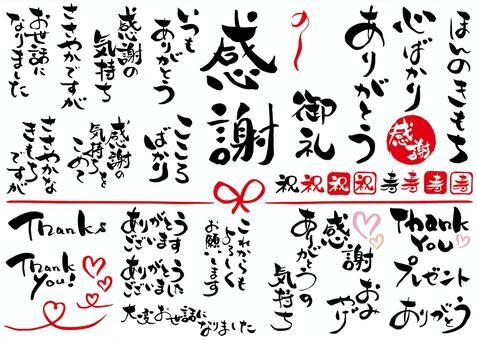 ほんのきもち
心ばかり
ありがとう
感謝
御礼
感謝
いつも
ありがとう
こころ
ばかり
感謝の
気持ち
感謝の
気持ちを
こめて
ささやかですが
ささやかな
きもち
ですが
お世話に
なりました
祝 祝 祝 祝 寿 寿 寿 寿
Thank
You
プレゼント
ありがとう
感謝
おみ
やげ
ありがとうの
気持ち
これからも
よろしく
お願いします
ありがとう
ございます
ありがとう
ございました
大変お世話になりました
Thanks
Thank
You!